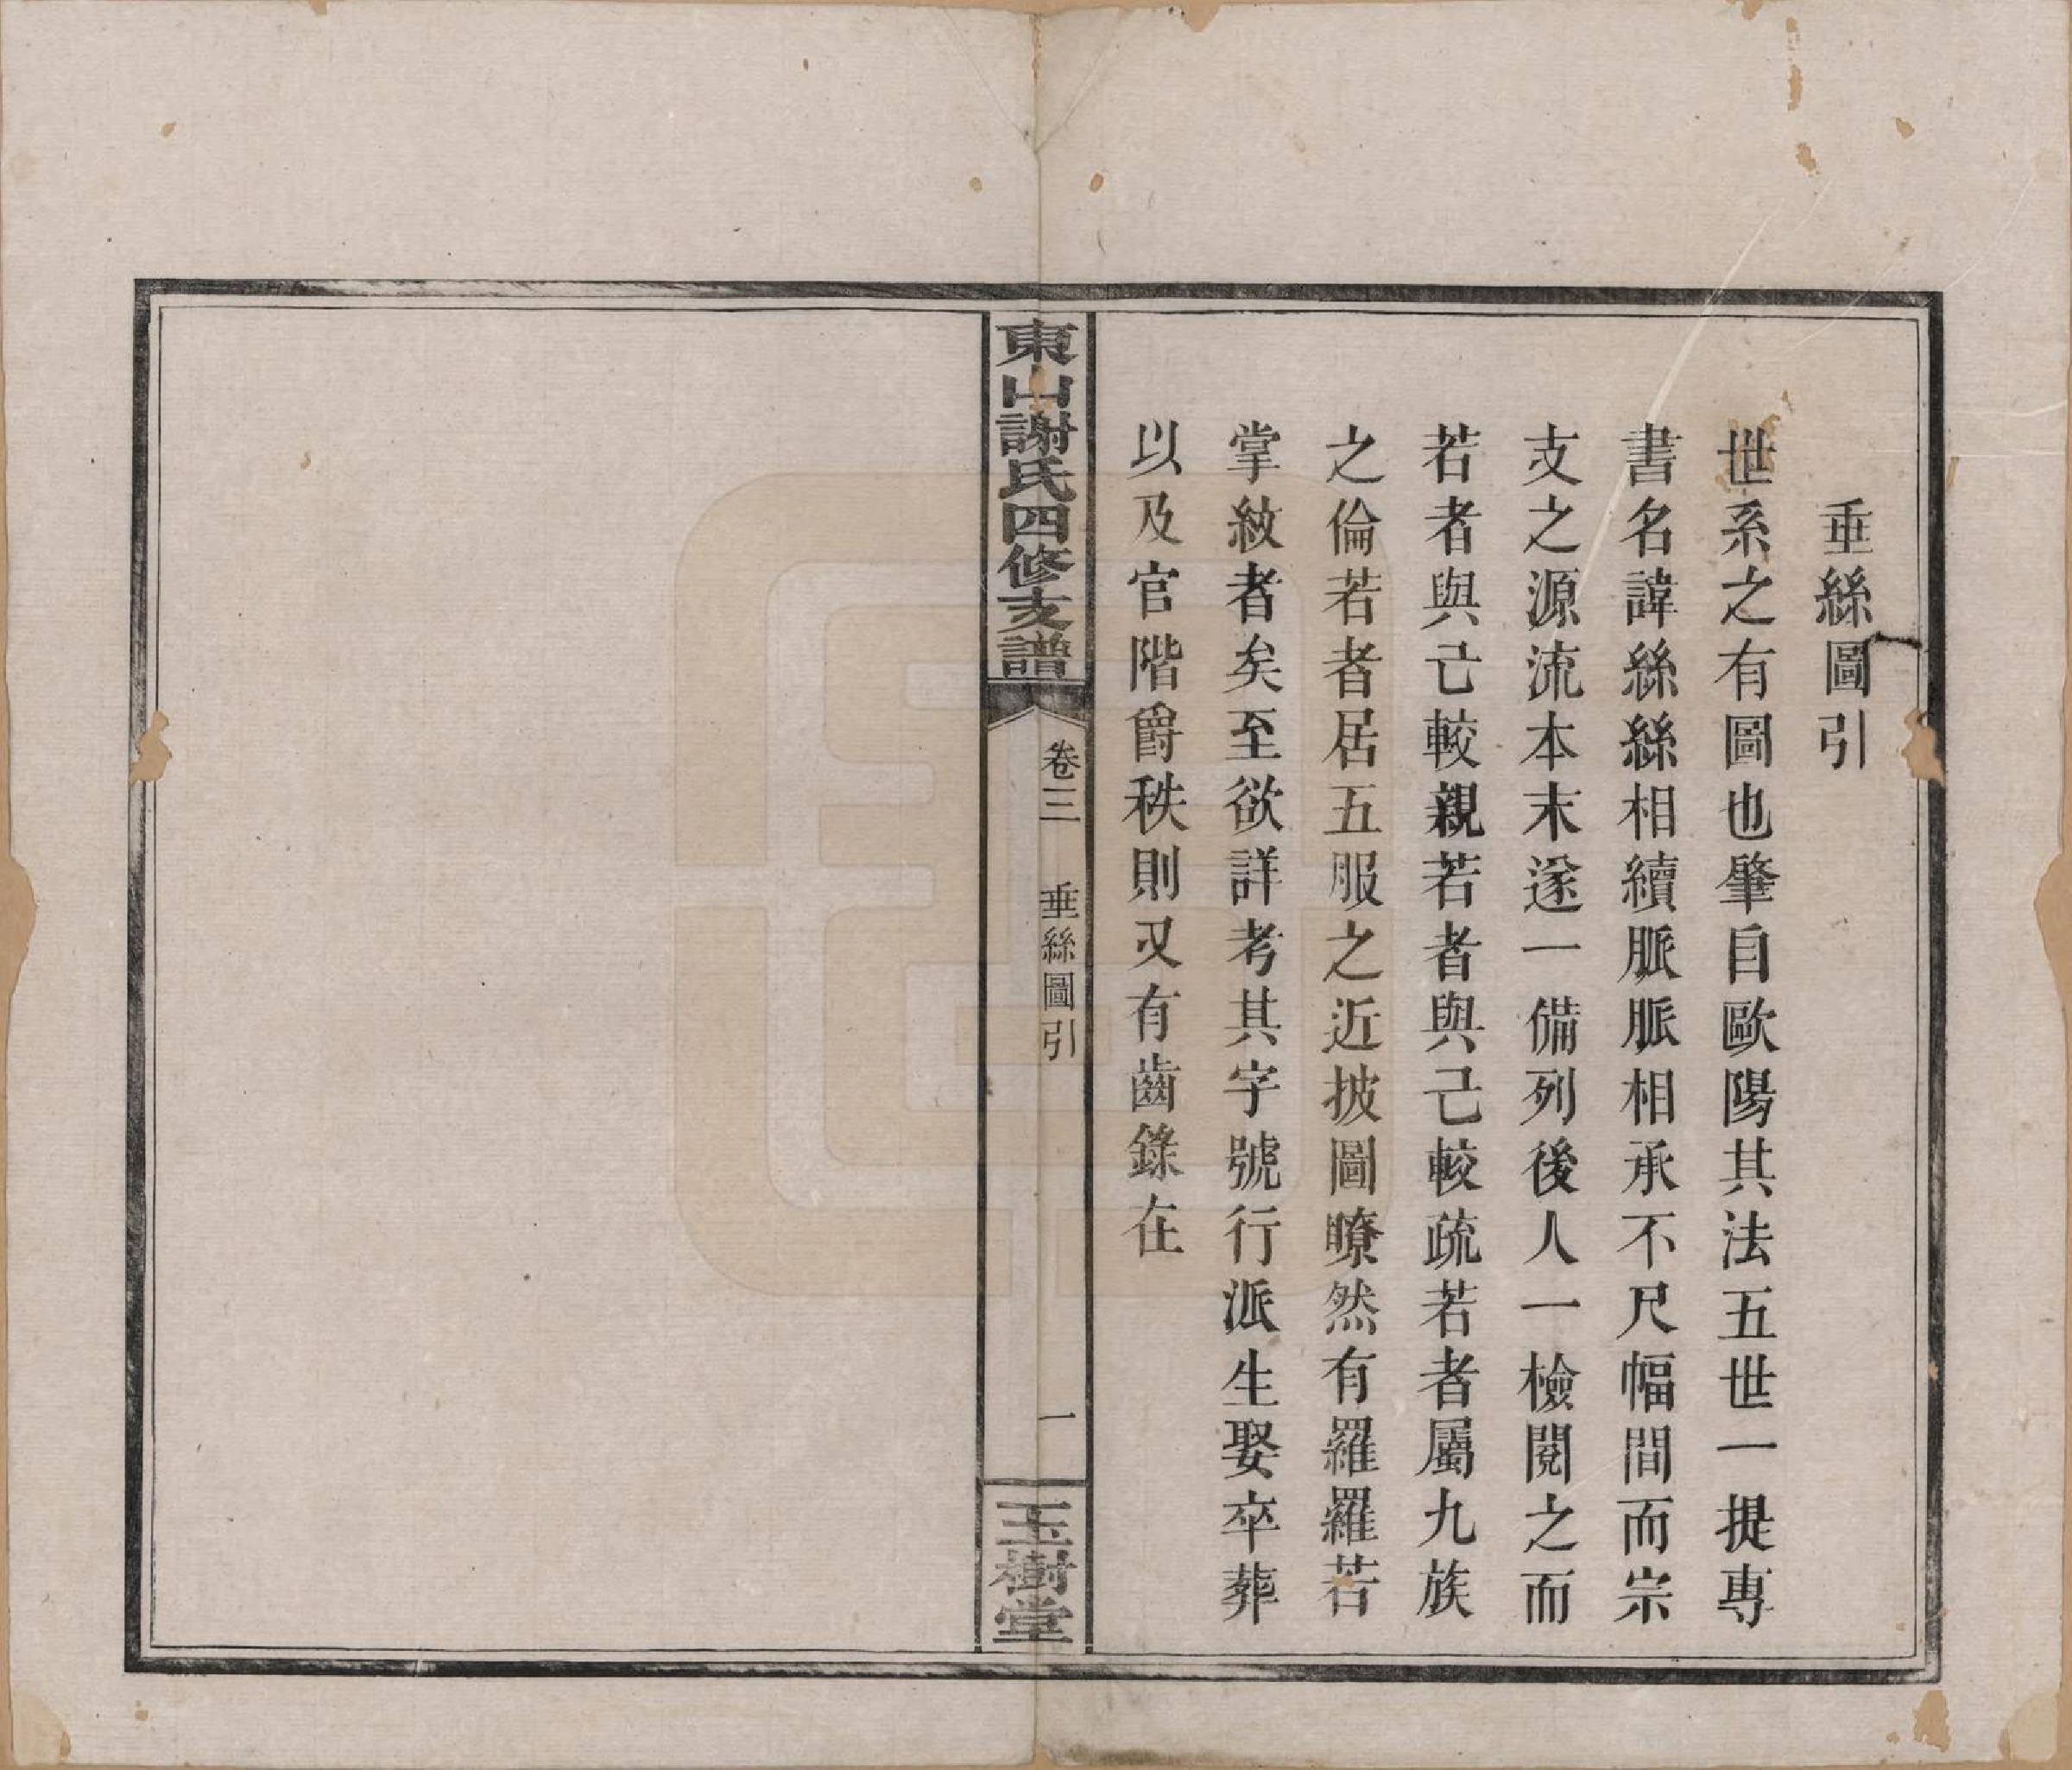 垂絲圖引
世系之有圖也肇自歐陽其法五世一提專
書名諱絲絲相續脈脈相承不尺幅間而宗
支之源流本末遂一備列後人一檢閱之而
若者與己較親若者與己較疏若者屬九族
之倫若者居五服之近披圖瞭然有羅羅若
掌紋者矣至欲詳考其字號行派生娶卒葬
以及官階爵秩則又有齒錄在
東山謝氏四修支譜
卷三
垂絲圖引
一
玉樹堂